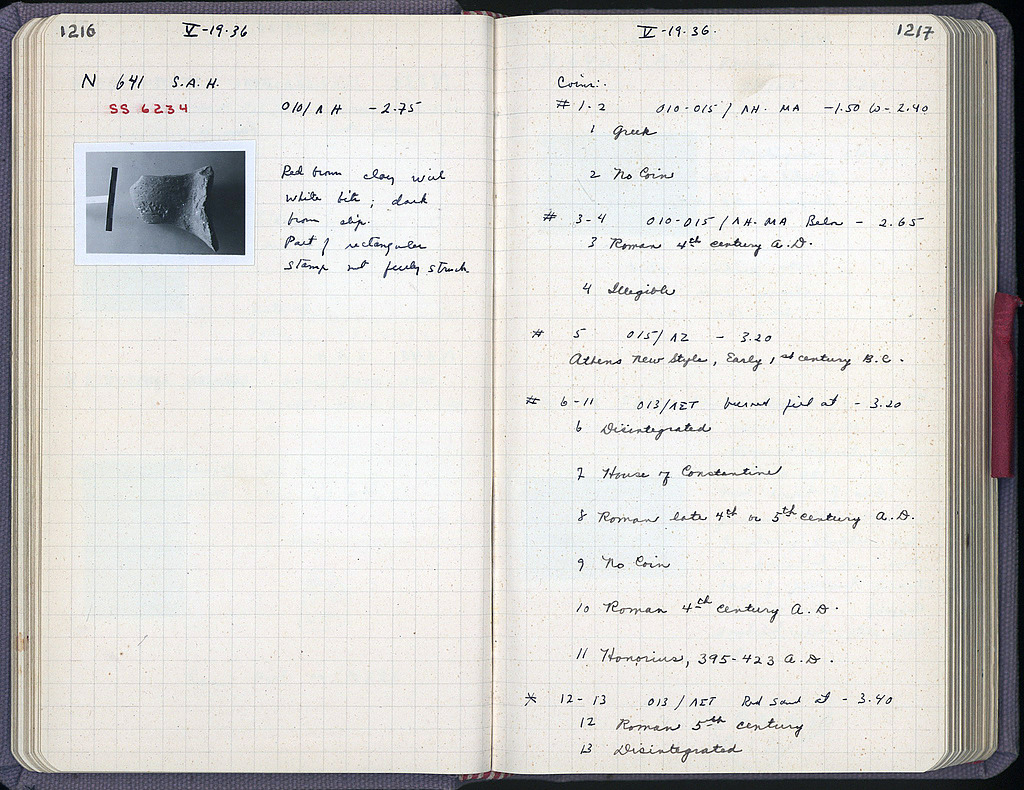 1216
V-19-36
N 641 S.A.H.
SS 6234
010/ΛH -2.75
Red brown clay with
white bits; dark
brown slip.
Part of rectangular
stamp not fully struck
V-19-36.
1217
Coins:
# 1-2 010-015/ΛH. MA -1.50 W-2.40
1 Greek
2 No Coin
# 3-4 010-015/ΛH. MA Below - 2.65
3 Roman 4th century A.D.
4 Illegible
# 5 015/ΛZ - 3.20
Athens New Style, Early, 1st century B.C.
# 6-11 013/ΛΣT burned fill at - 3.20
6 Disintegrated
7 House of Constantine
8 Roman late 4th or 5th century A.D.
9 No Coin
10 Roman 4th century A.D.
11 Honorius, 395-423 A.D.
* 12-13 013/ΛΣT Red sand at - 3.40
12 Roman 5th century
13 Disintegrated